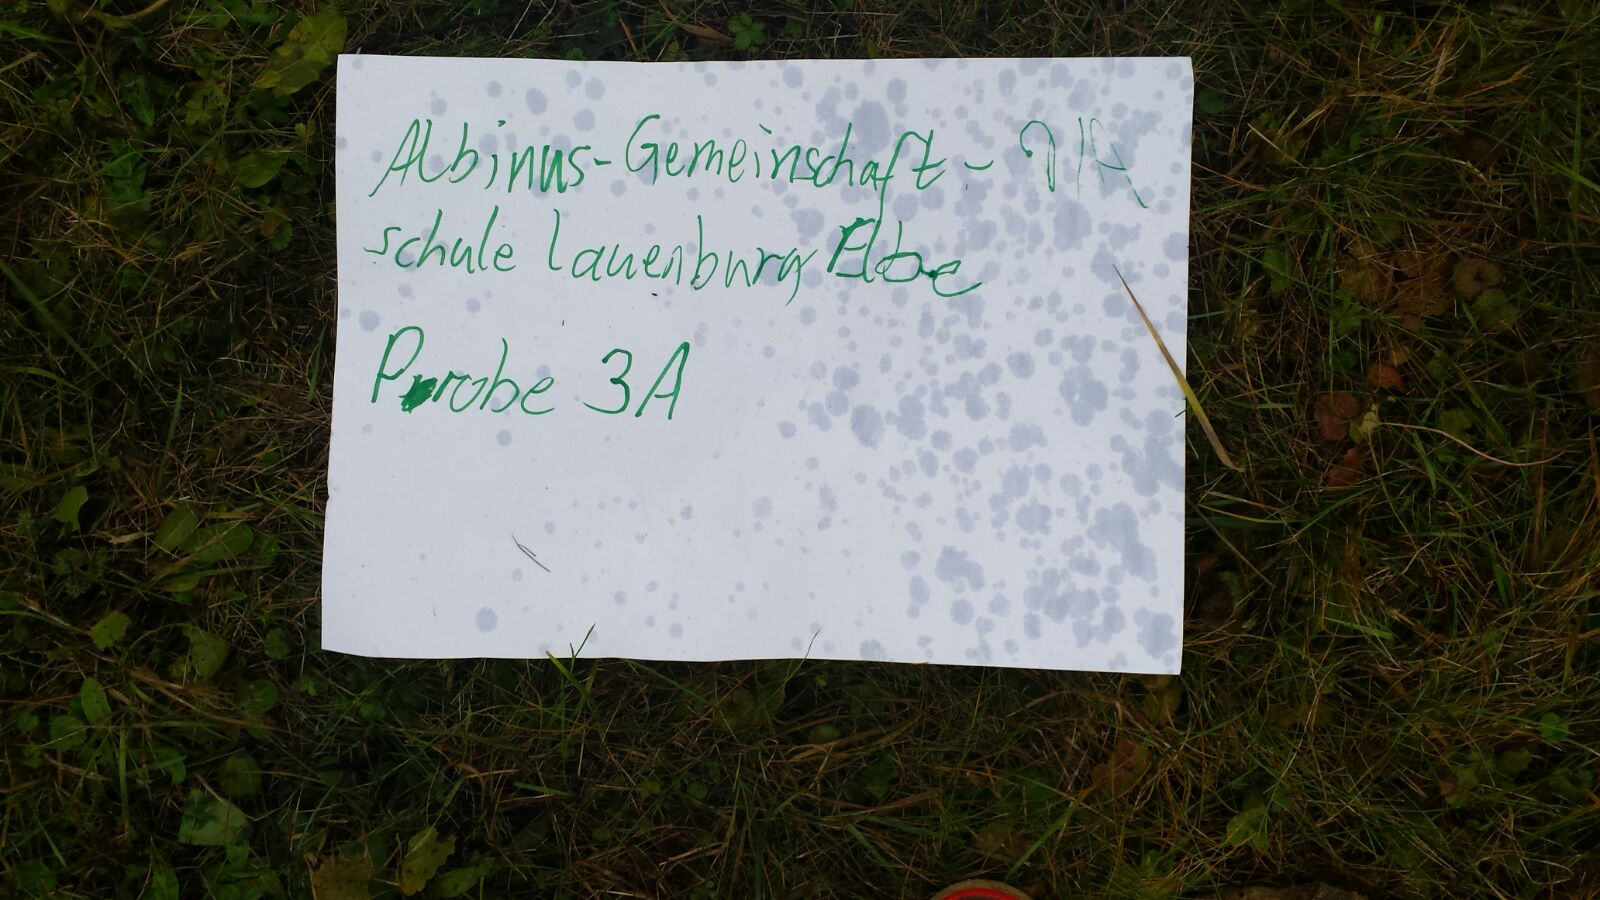 Albinus-Gemeinschaft-
schule Lauenburg Elbe
Probe 3A